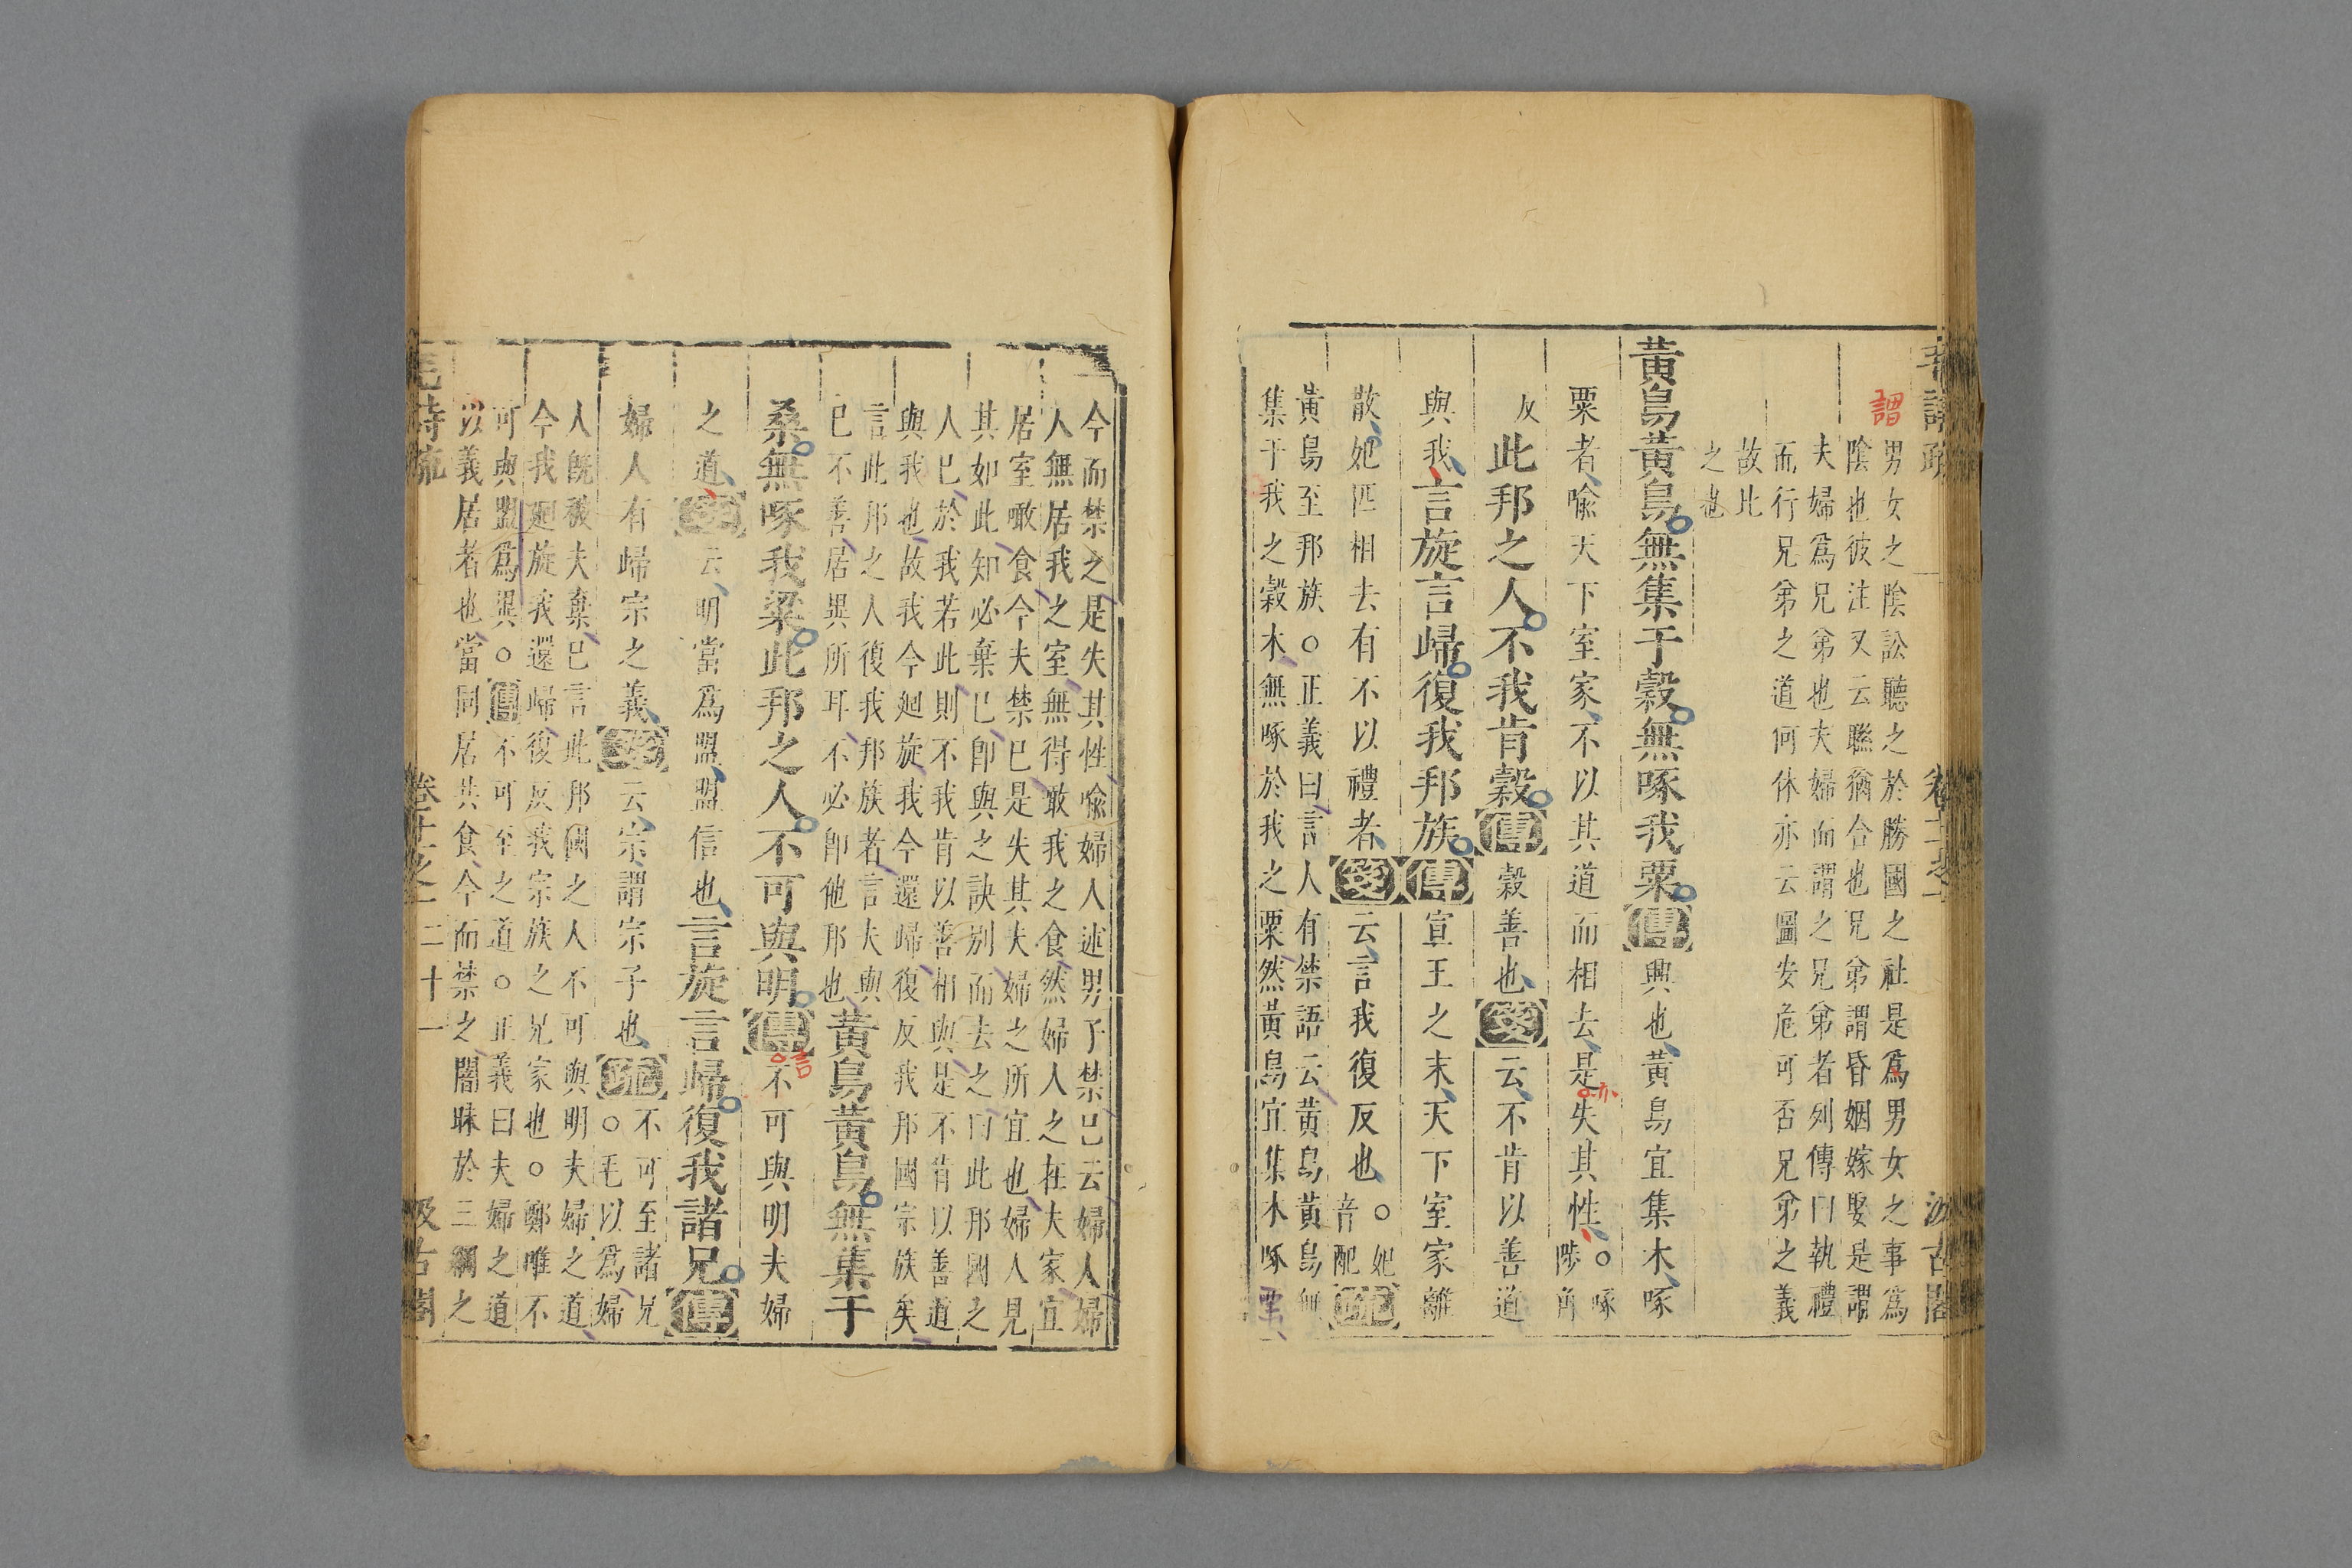 謂
男女之陰訟聽之於勝國之社是爲男女之事爲
陰也彼注又云聯猶合也兄弟謂昏姻嫁娶是謂
夫婦爲兄弟也夫婦而謂之兄弟者列傳曰執禮
而行兄弟之道何休亦云圖安危可否兄弟之義
故此
之也
黃鳥黃鳥無集于穀無啄我粟傳興也黃鳥宜集木啄
粟者喻天下室家不以其道而相去是失其性○啄
陟角
反此邦之人不我肯穀傳穀善也箋云不肯以善道
與我言旋言歸復我邦族傳宣王之末天下室家離
散妃匹相去有不以禮者箋云言我復反也○妃
音配疏
黃鳥至邦族○正義曰言人有禁語云黃鳥黃鳥無
集于我之穀木無啄於我之粟然黃鳥宜集木啄粟
亦
今而禁之是失其性喻婦人述男子禁已云婦人婦
人無居我之室無得噉我之食然婦人之在夫家宜
居室噉食今夫禁已是失其夫婦之所宜也婦人見
其如此知必棄已卽與之訣别而去之曰此邦國之
人已於我若此則不我肯以善相與是不肯以善道
與我也故我今迴旋我今還歸復反我邦國宗族矣
言此邦之人復我邦族者言夫與
已不善居異所耳不必卽他邦也黃鳥黃鳥無集于
桑無啄我粱此邦之人不可與明傳不可與明夫婦
言
之道箋云明當爲盟盟信也言旋言歸復我諸兄傳
婦人有歸宗之義箋云宗謂宗子也疏不可至諸兄
○毛以爲婦
人旣被夫棄已言此邦國之人不可與明夫婦之道
今我迴旋我還歸復反我宗族之兄家也○鄭唯不
可與盟爲異○傳不可至之道○正義曰夫婦之道
以義居者也當同居共食今而禁之闇昧於三綱之
毛詩疏 卷十一之一 二十一 汲古閣